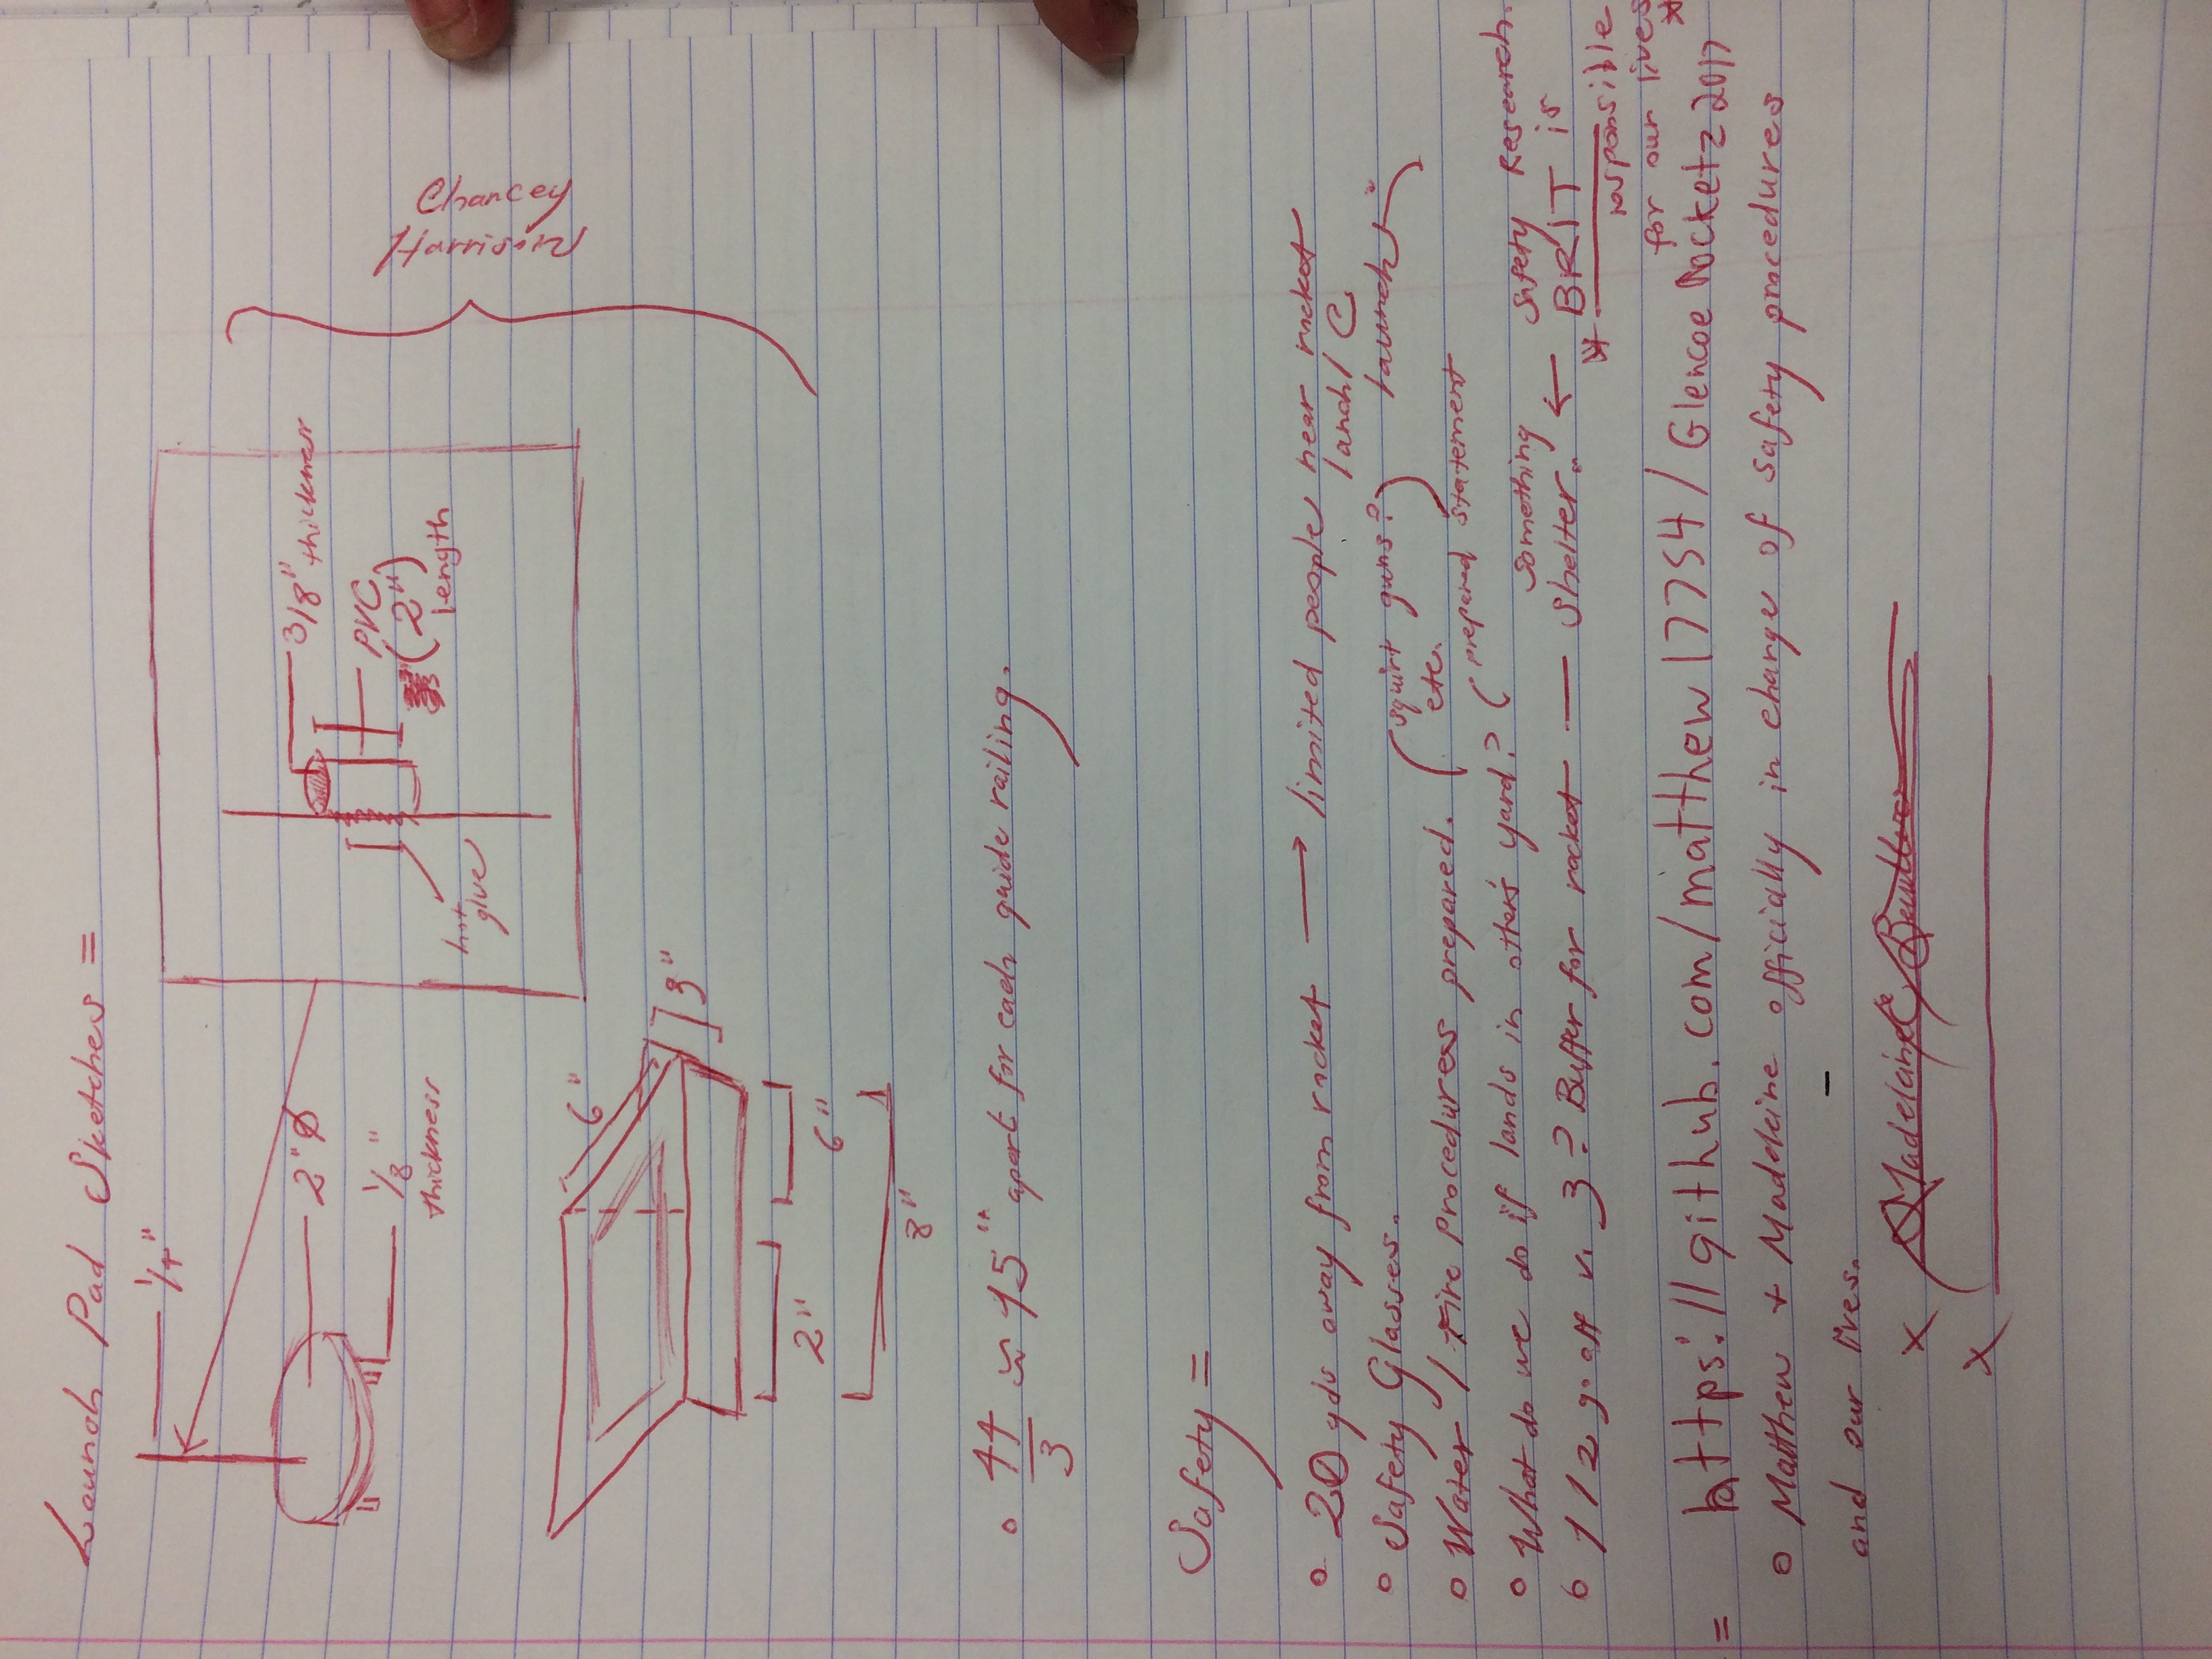 Launch Pad Sketches =
1/4"
2" Ø
1/8"
thickness
3/8" thickness
PVC
(2")
length
hot
glue
Chancey
Harrison
6"
3"
2"
6"
8"
44/3 ≈ 15" apart for each guide railing.
Safety =
20 yds away from rocket → limited people near rocket
lanch/
Safety Glasses.
launch
Water / Fire Proceduress prepared. (squirt guns?)
etc.
What do we do if lands in other's yard? (prepared statement
1/2 go off v. 3? Buffer for rocket — something
shelter. ← Safety Research.
BRIT is
responsible
for our lives *
= https://github.com/matthew17754/Glencoe Rocketz 2017
Matthew + Madeleine officially in charge of safety procedures
and our lives.
x Madeleine
x